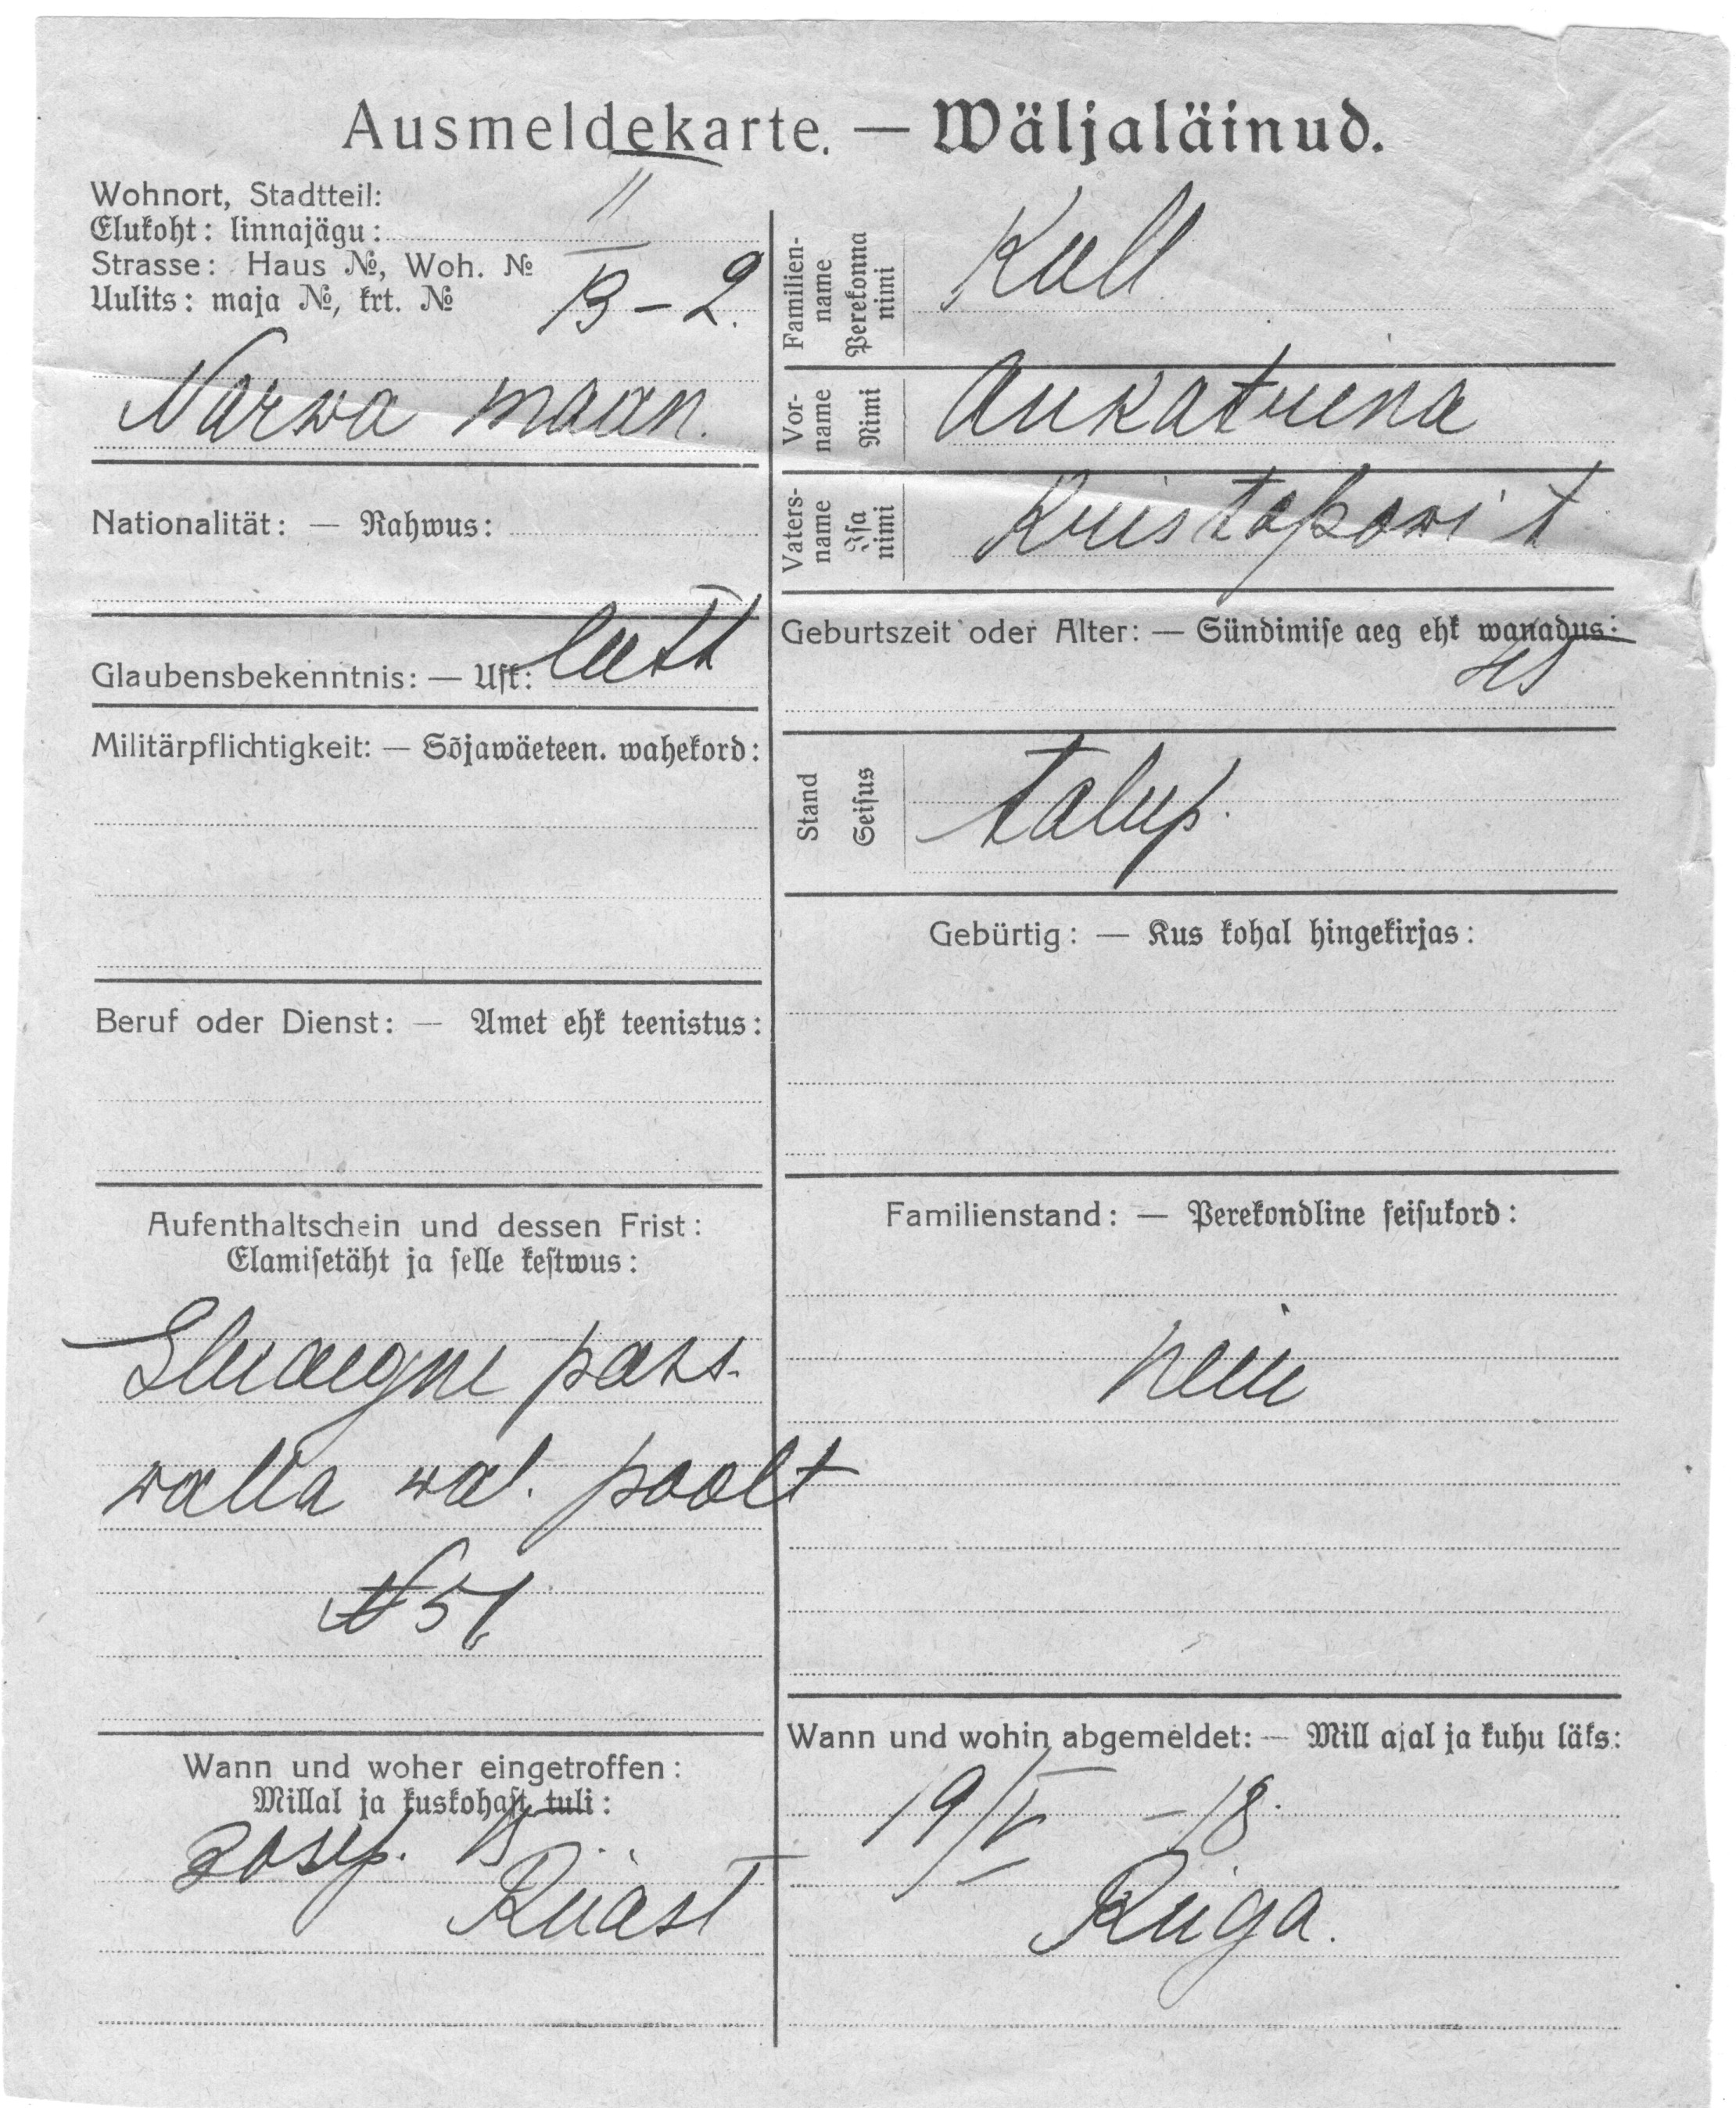 Ausmeldekarte. — Wäljaläinud.
Wohnort, Stadtteil:
Elukoht: linnajägu: II
Strasse: Haus №, Woh. №
Uulits: maja №, krt. № 13 – 2.
Narwa maan.
Nationalität: — Rahwus:
Glaubensbekenntnis: — Usk: lutt
Militärpflichtigkeit: — Sõjawäeteen. wahekord:
Beruf oder Dienst: — Amet ehk teenistus:
Aufenthaltschein und dessen Frist:
Elamisetäht ja selle kestwus:
pass.
walla wal. poolt
№ 51
Wann und woher eingetroffen:
Millal ja kuskohast tuli:
Familien-name Perekonna nimi Kull
Vor-name Nimi
Vaters-name Isa nimi Kristapowit
Geburtszeit oder Alter: — Sündimise aeg ehk wanadus:
Stand Seisus talup.
Gebürtig: — Kus kohal hingekirjas:
Familienstand: — Perekondline seisukord:
neiu
Wann und wohin abgemeldet: — Mill ajal ja kuhu läks:
19/V – 18.
Riiga.